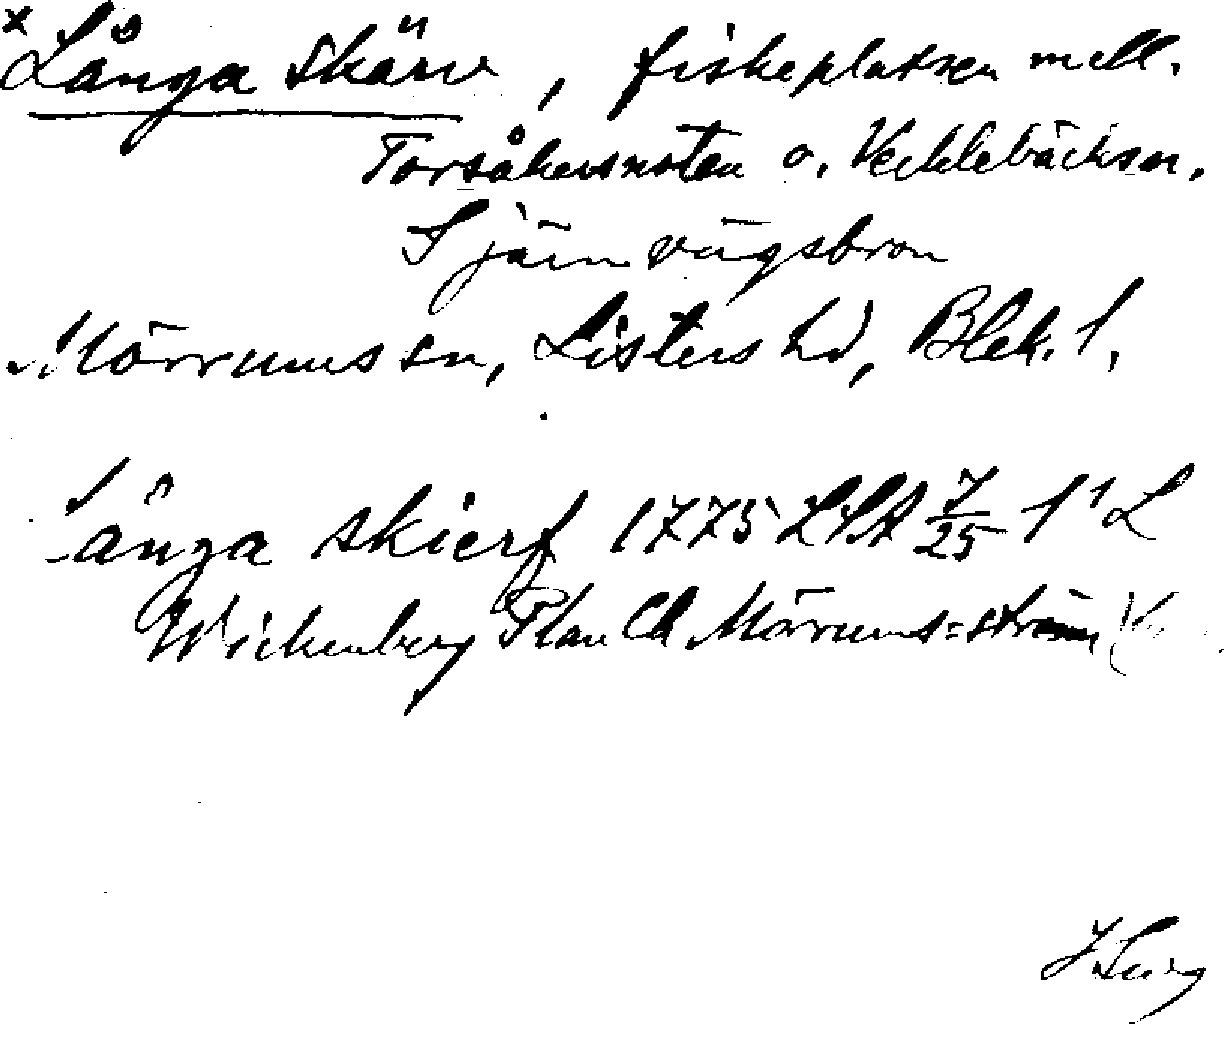 x Långa skärv, fiskeplatsen mell.
Torsåkersnoten o. Vecklebäcksn.
Sjärnvägsbron
Mörrums sn, Listers hd, Blek. l.
Långa skierf 1775 LSA 7/25 1¹ L
Wickenberg Plan Ch Mörrums=ström